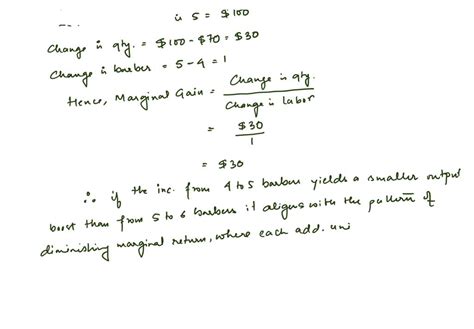 is 5 = $100
Change in qty. = $100 - $70 = $30
Change in barber = 5 - 4 = 1
Hence, Marginal Gain = Change in qty.
Change in labor
= $30
1
= $30
∴ if the inc. from 4 to 5 barbers yields a smaller output
boost than from 5 to 6 barbers it aligns with the pattern of
diminishing marginal return, where each add. uni